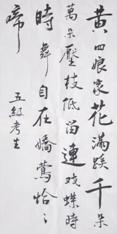 黄四娘家花满蹊千朵
万朵压枝低留连戏蝶时
時舞自在嬌莺恰〻
啼
五紅考生